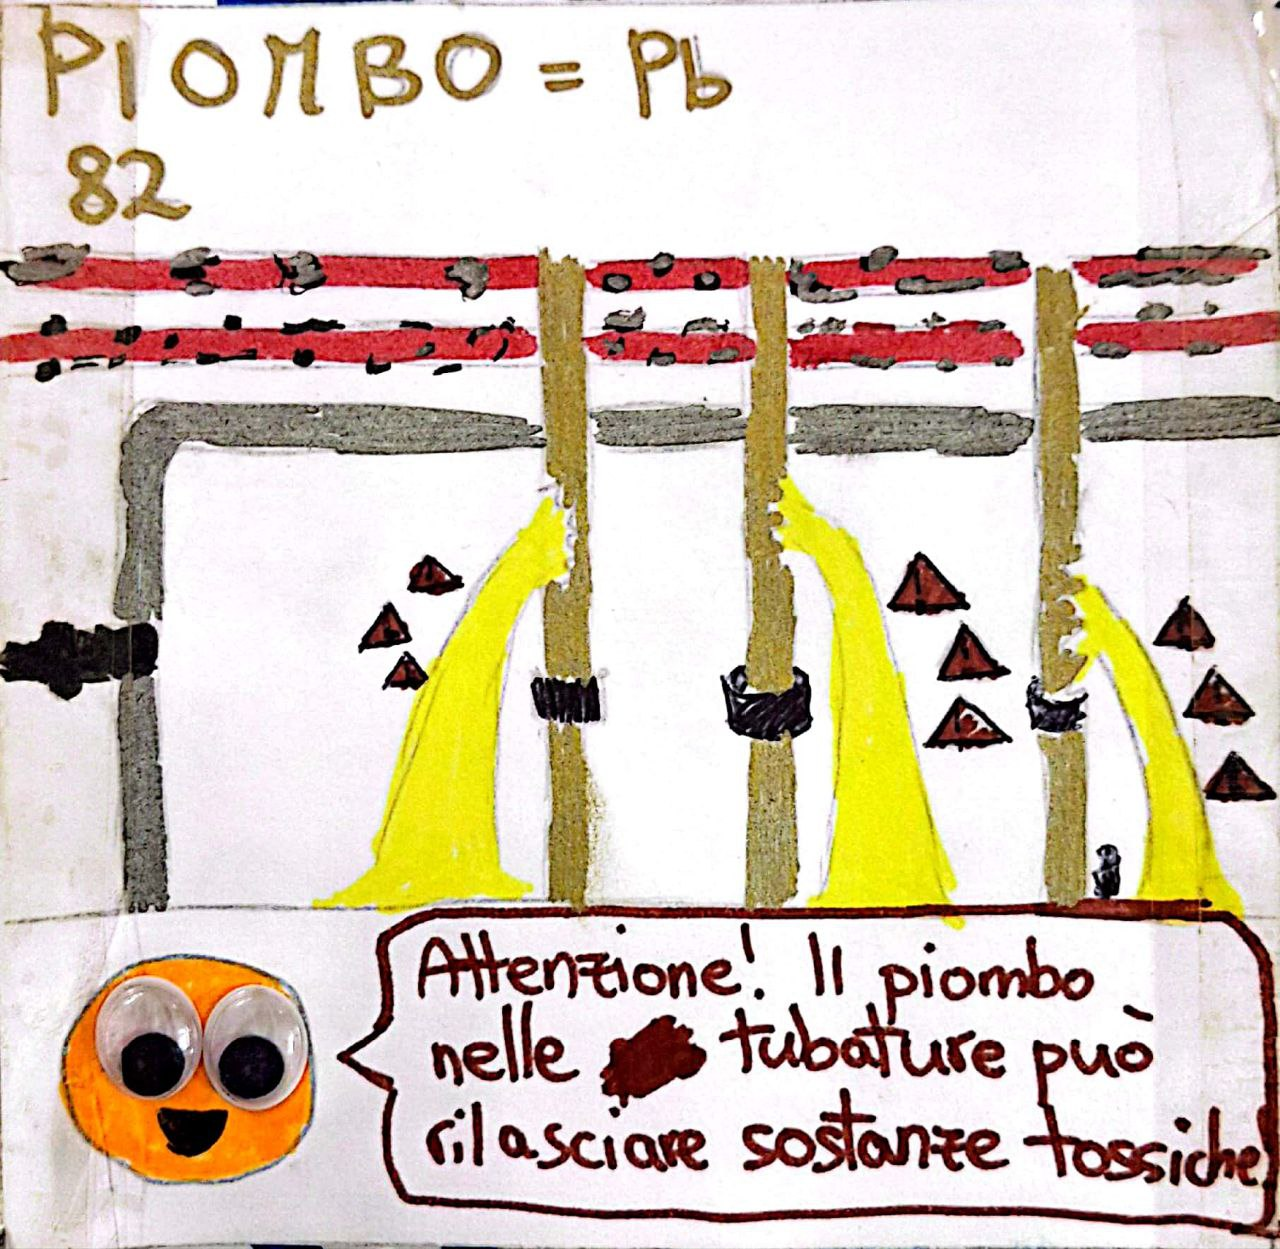 PIOMBO = Pb
82
Attenzione! Il piombo
nelle tubature può
rilasciare sostanze tossiche!